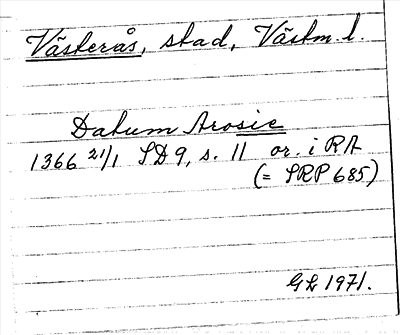 Västerås, stad, Västm. l.
Datum Arosie
1366 21/1 SD 9, s. 11 or. i RA
(= SRP 685)
GL 1971.